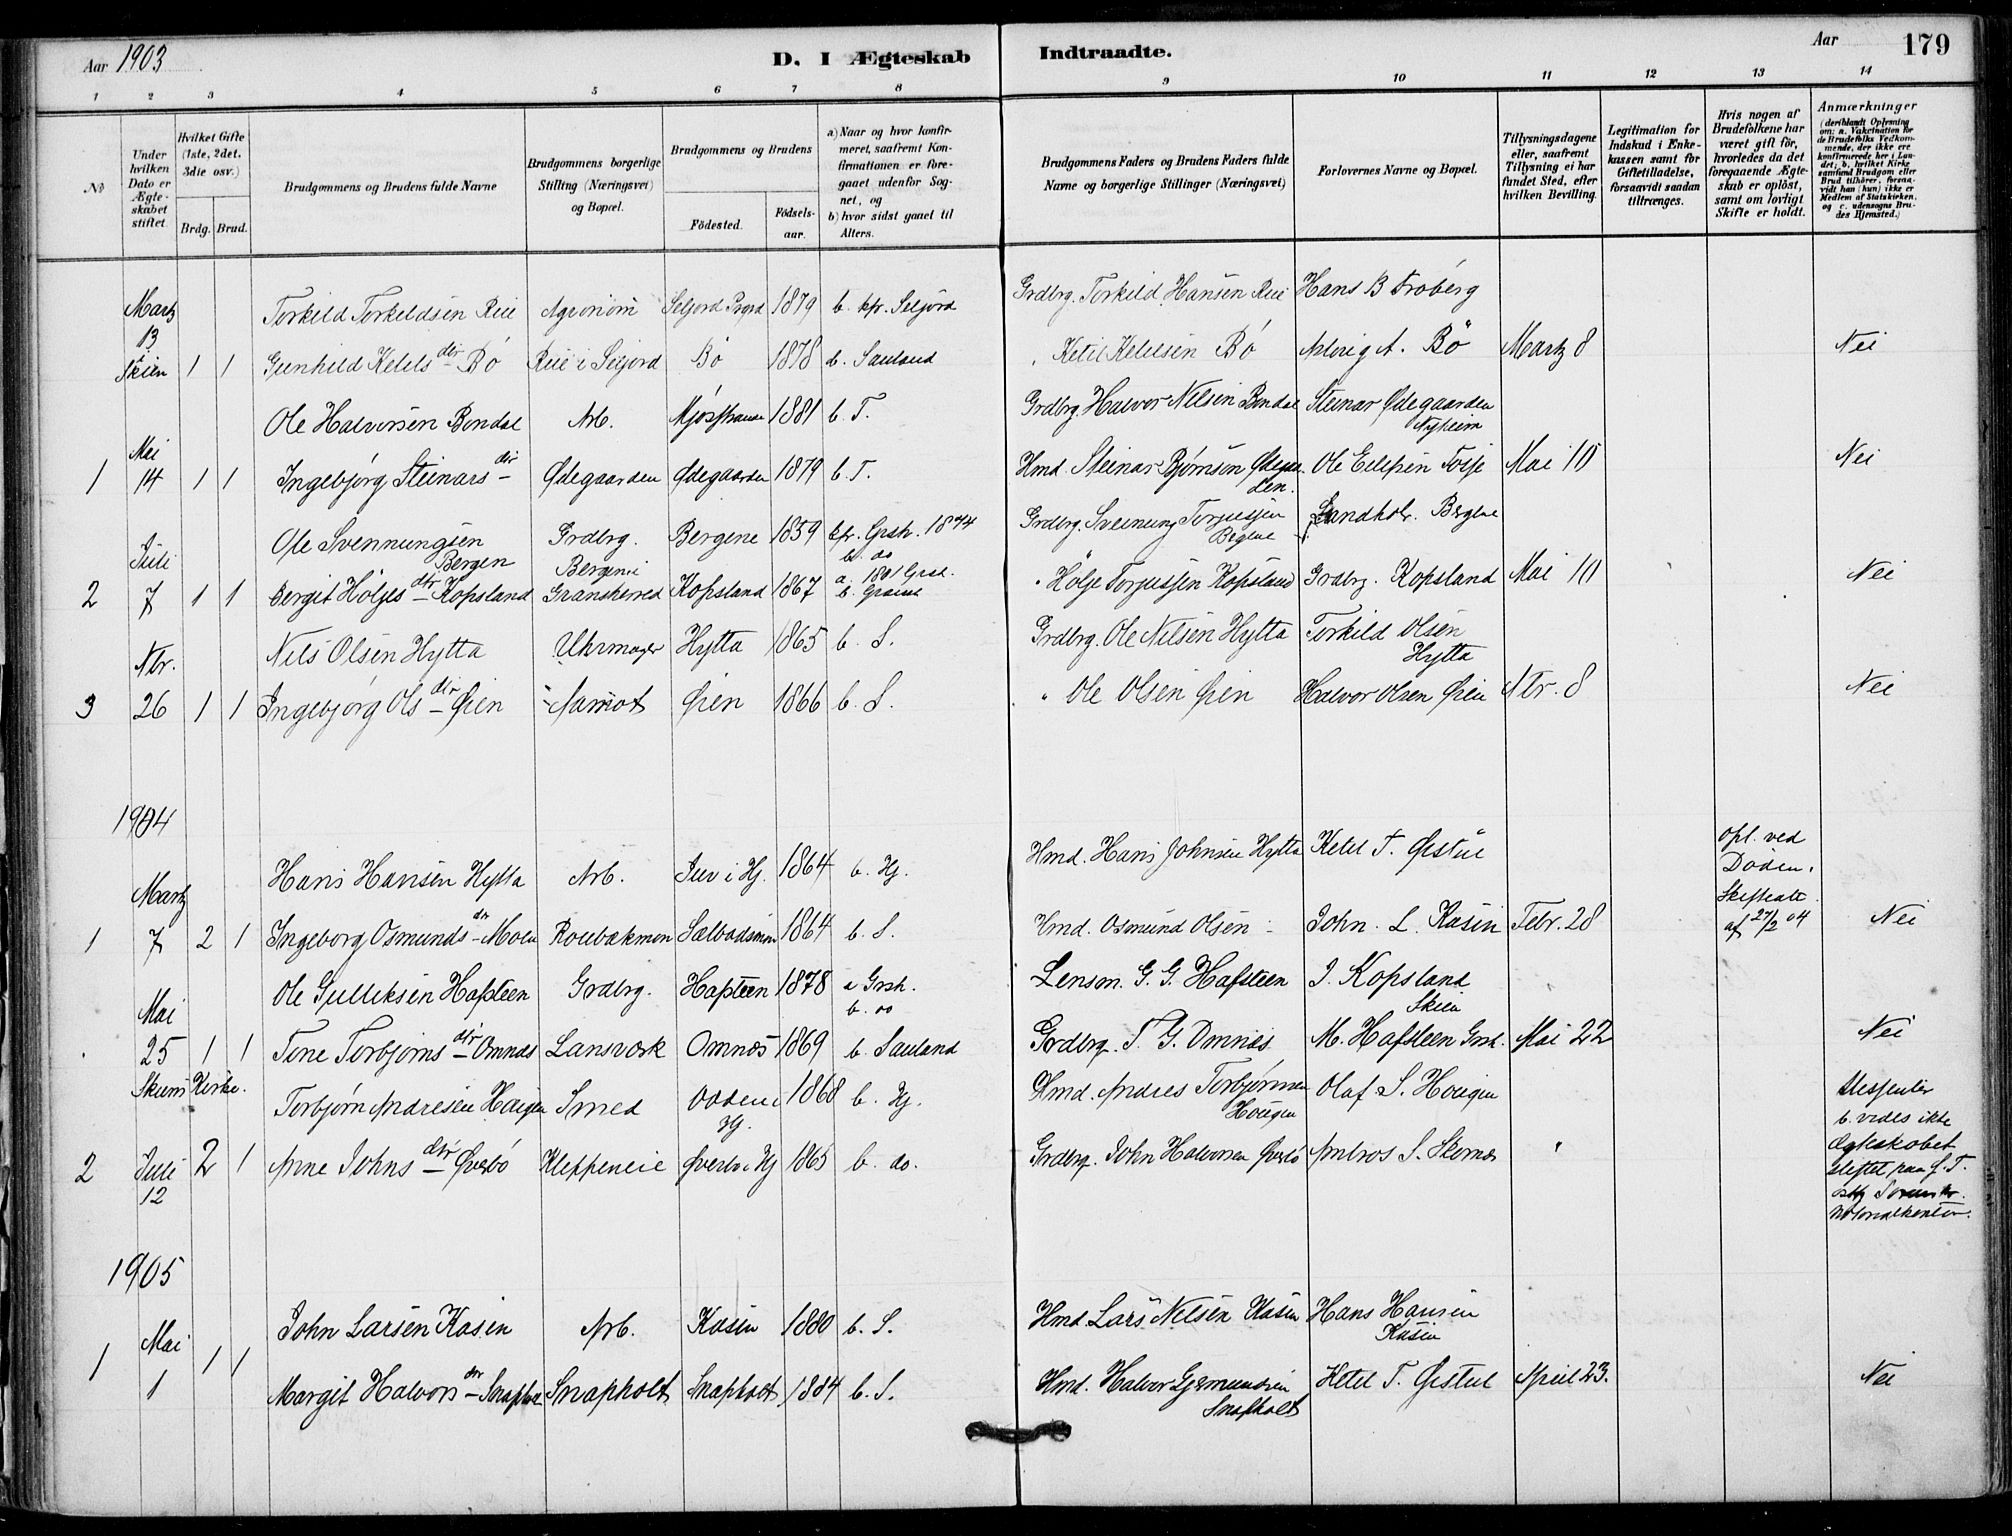 Aar 1903
D. I Ægteskab Indtraadte.
Aar 179
1 2 3 4 5 6 7 8 9 10 11 12 13 14
No
Under hvilken Dato er Ægteskabet stiftet.
Hvilket Gifte (1ste, 2det, 3die osv.)
Brdg. Brud.
Brudgommens og Brudens fulde Navne
Brudgommens borgerlige Stilling (Næringsvei) og Bopæl.
Brudgommens og Brudens
Födested. Födsels-aar.
a) Naar og hvor konfirmeret, saafremt Konfirmationen er foregaaet udenfor Sognet, og
b) hvor sidst gaaet til Alters.
Brudgommens Faders og Brudens Faders fulde Navne og borgerlige Stillinger (Næringsvei)
Forlovernes Navne og Bopæl.
Tillysningsdagene eller, saafremt Tillysning ei har fundet Sted, efter hvilken Bevilling.
Legitimation for Indskud i Enkekassen samt for Giftetilladelse, forsaavidt saadan tiltrænges.
Hvis nogen af Brudefolkene har været gift för, hvorledes da det foregaaende Ægteskab er oplöst, samt om lovligt Skifte er holdt.
Anmærkninger (deriblandt Oplysning om: a. Vakcination for de Brudefolks Vedkommende, der ikke ere konfirmerede her i Landet; b. hvilket Kirkesamfund Brudgom eller Brud tilhörer, forsaavidt han (hun) ikke er Medlem af Statskirken, og c. udensogns Brudes Hjemsted.)
Martz Torkild Torkildsen Rue Agronom Seljord Prgd 1879 b. Seljord Grdbrg. Torkild Hansen Rue Hans B Froberg
13 Skien 1 1 Gunhild Ketils dtr Bö Rue i Seljord Bö 1878 b. Sauland Ketil Ketilsen Bö A. Bö Martz 8 Nei
Ole Halvorsen Bondal Arb. 1881 b. T. Grdbrg. Halvor Nilsen Bondal Steinar Ødegaarden Nyheim
1 Mai 14 1 1 Ingebjørg Steinars dtr Ødegaarden Ødegaarden 1879 b. T. Hmd. Steinar Bjørnson Ødegaarden Ole Mai 10 Nei
Ole Svennungsen Bergen Grdbrg. Bergene 1859 kfr. Grsh. 1874 b. do Grdbrg. Sveinung Torjussen Bergene
2 Juli 7 1 1 Bergit Höljes dtr Kopsland Bergene i Gransherred Kopsland 1867 a. 1881 Grsh. Hölje Torjussen Kopsland Grdbrg. Kopsland Mai 10 Nei
Nils Olsen Hytta Uhrmager Hytta 1865 b. S. Grdbrg. Ole Nilsen Hytta Torkild Olsen Hytta
3 Nbr. 26 1 1 Ingebjørg Ols dtr Øien Øien 1866 b. S. Ole Olsen Øien Halvor Olsen Øien Nbr. 8 Nei
1904
Hans Hansen Hytta Arb. Juv i Hj. 1864 b. Hj. Hmd. Hans Johnsen Hytta Ketil T. Østul opl. ved Döden.
1 Martz 7 2 1 Ingeborg Osmunds dtr Moen 1864 b. S. Hmd. Osmund Olsen John L. Kasin Febr. 28 Skifteatt. af 27/2 04 Nei
Ole Gulliksen Hafsteen Grdbrg. Hafsteen 1878 a Grsh. b. do Lensm. G. G. Hafsteen J. Kopsland Skien
Mai 25 1 1 Tone Torbjørns dtr Omnæs Landsværk Omnæs 1869 b. Sauland Grdbrg. T. G. Omnæs M. Hafsteen Grsh. Mai 22 Nei
Skiens Kirke.
Torbjørn Andresen Haugen Smed Hj. 1868 b. Hj. Hmd. Andres Torbjørnsen Hougen Olaf S. Hougen
2 Juli 12 2 1 Anne Johns dtr Øverbö Kleppeneie Øverbö i Hj 1865 b. do. Grdbrg. John Halvorsen Øverbö Ambros S. Skornæs
b. vides ikke Ægteskabet stiftet paa
1905
John Larsen Kasin Arb. Kasin 1880 b. S. Hmd. Lars Nilsen Kasin Hans Hansen Kasin
1 Mai 1 1 1 Margit Halvors dtr Snapholt Snapholt Snapholt 1884 b. S. Hmd. Halvor Gjermundsen Snapholt Ketil T. Østul April 23. Nei